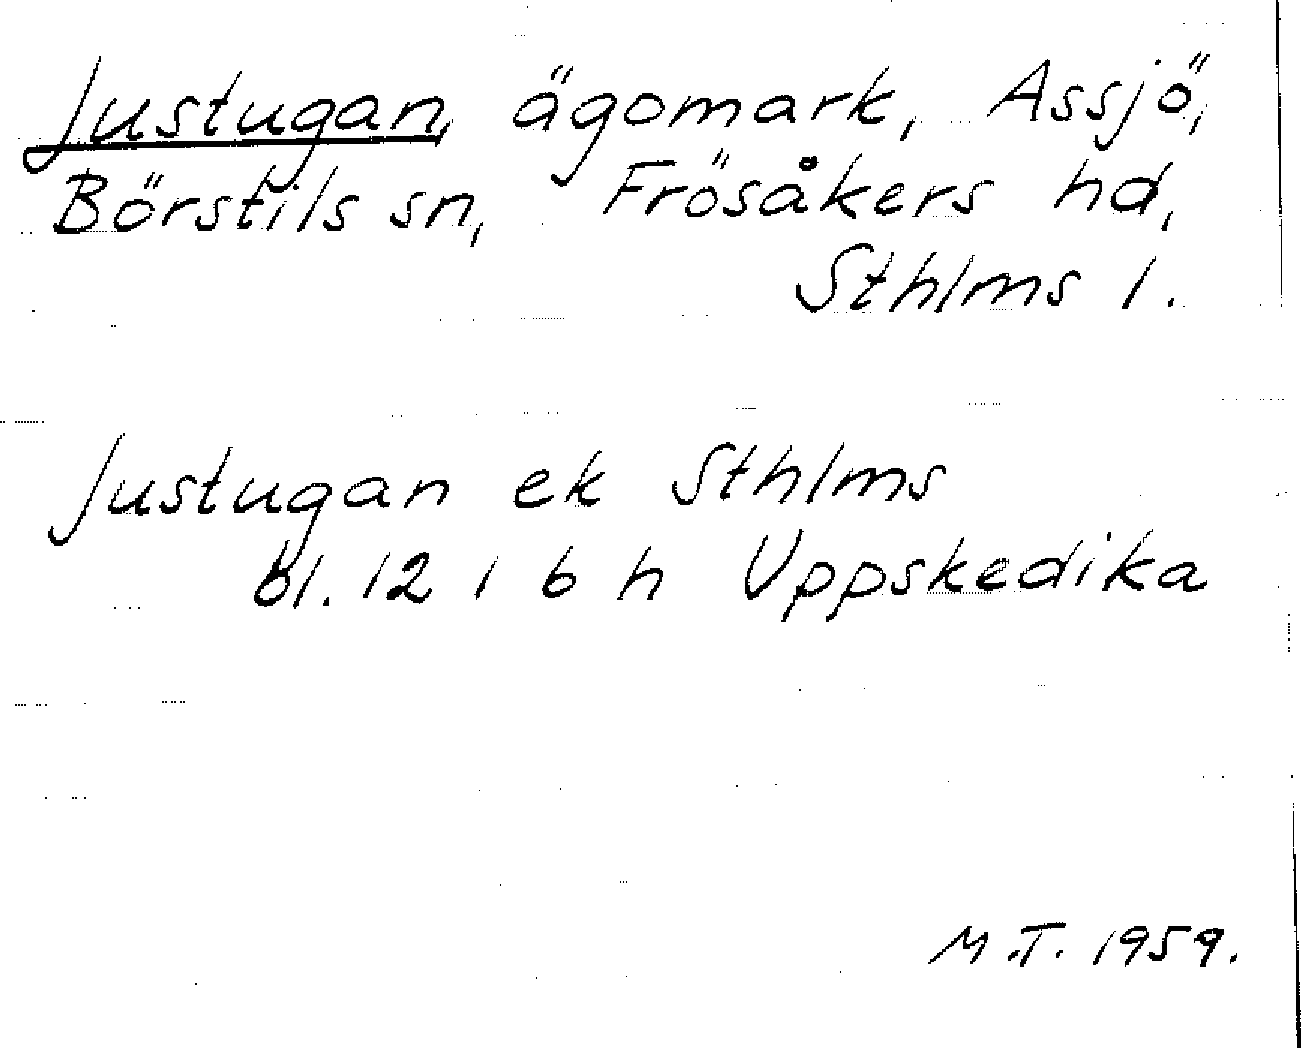 Justugan, ägomark, Assjö,
Börstils sn, Frösåkers hd,
Sthlms l.
Justugan ek Sthlms
bl. 12 I 6 h Uppskedika
M.T. 1959.